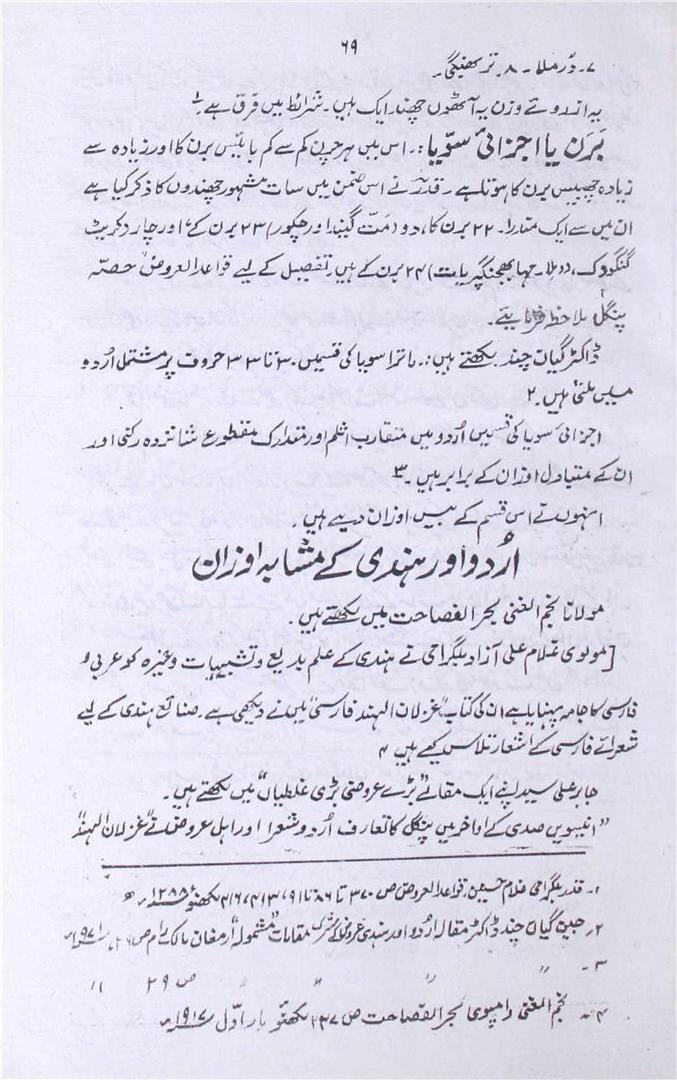 ۶۹
۷۔ دُرملا۔ ۸۔ تربھنگی۔
یہ ازروئے وزن یہ آٹھوں چھند ایک ہیں۔ شرائط میں فرق ہے۱
بَرَن یا اجزائی سوّیا:۔ اس میں ہر چرن کم سے کم بائیس برن کا اور زیادہ سے
زیادہ چھبیس برن کا ہوتا ہے۔ قدر نے اس ضمن میں سات مشہور چھندوں کا ذکر کیا ہے
ان میں سے ایک مندرا۔ ۲۲ برن کا، دو (مَت گیند اور چکور) ۲۳ برن کے، اور چار (کریٹ
گنگودک، دوملا۔ مہا بھجنگپریات) ۲۴ برن کے ہیں۔ تفصیل کے لیے قواعد العروض حصّہ
پنگل ملاحظہ فرمایئے۔
ڈاکٹر گیان چند لکھتے ہیں:۔ ماترا سویا کی قسمیں ۳۰ تا ۳۳ حروف پر مشتمل اُردو
میں ملتی ہیں۔۲
اجزائی سویا کی قسمیں اُردو میں متقارب اثلم اور متدارک مقطوع شانزدہ رکنی اور
ان کے متبادل اوزان کے برابر ہیں۔ ۳
انہوں نے اس قسم کے بیس اوزان دیے ہیں۔
اُردو اور ہندی کے مشابہ اوزان
مولانا نجم الغنی بحر الفصاحت میں لکھتے ہیں۔
[مولوی غلام علی آزاد بلگرامی نے ہندی کے علم بدیع و تشبیہات وغیرہ کو عربی و
فارسی کا جامہ پہنایا ہے ان کی کتاب غزلان الہند فارسی میں نے دیکھی ہے۔ صنائع ہندی کے لیے
شعرائے فارسی کے اشعار تلاش کیے ہیں ۴
جابر علی سید اپنے ایک مقالے "بڑے عروضی بڑی غلطیاں" میں لکھتے ہیں۔
"انیسویں صدی کے اواخر میں پنگل کا تعارف اُردو شعرا اور اہل عروض نے "غزلان الہند"
۱۔ قدر بلگرامی غلام حسنین، قواعد العروض ص ۳۷۰ تا ۳۸۶ لکھنؤ
۲۔ جین گیان چند ڈاکٹر مقالہ اُردو اور ہندی عروض کے مشترک مقامات مشمولہ ارمغان مالک رام ص ۱۹۷۱ء
۳۔ " " " " ص ۲۹ "
۴۔ نجم الغنی رامپوری بحر الفصاحت ص ۲۳۷ لکھنؤ بار اوّل ۱۹۱۷ء